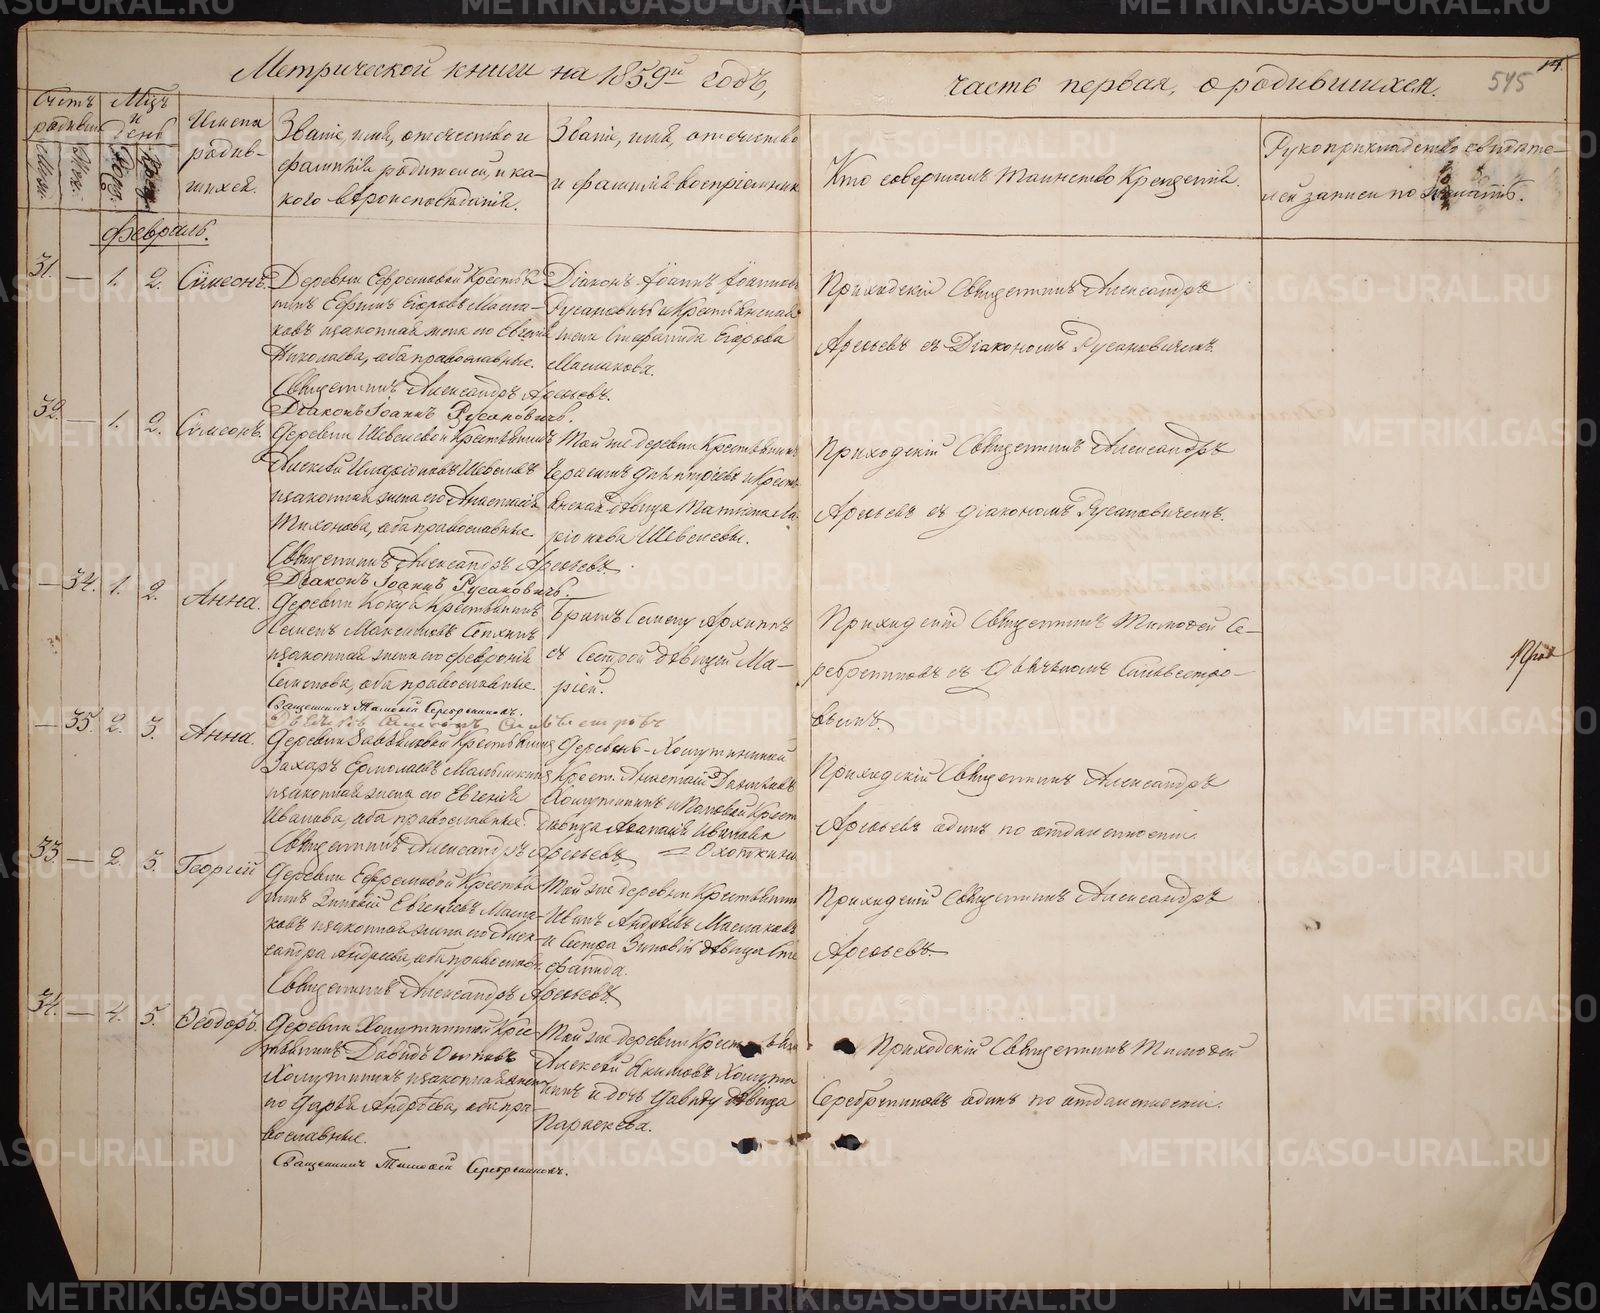 Метрической книги на 1859й годъ,
часть первая, о родившихся.
14.
545
Счетъ родивш.
Муж.
Жен.
Мѣц и день
Рожд.
Крещ.
Имена
родив-
шихся.
Званіе, имя, отчество и
фамилія родителей, и ка-
кого вѣроисповѣданія.
Званіе, имя, отчество
и фамилія воспріемник
Кто совершилъ таинство Крещенія.
Рукоприкладство свидѣте-
лей записи по
Февраль.
31. — 1. 2. Сѵмеонъ.
Деревни Ефремовой Крестья
нинъ Ефимъ Масла-
ковъ и законная жена его Евгенія
Николаева, оба православные.
Священникъ Александръ Арефьевъ.
Діаконъ Іоаннъ Русановичъ.
Діаконъ Іоаннъ Іоанновъ
Русановичъ и Крестьянская
жена Стефанида Егорова
Маслакова.
Приходскій Священникъ Александръ
Арефьевъ съ Діакономъ Русановичемъ.
32. — 1. 2. Сѵмеонъ.
Деревни Шевелевой Крестьянинъ
Алексѣй Шевелевъ
и законная жена его Анастасія
Тихонова, оба православные.
Священникъ Александръ Арефьевъ.
Діаконъ Іоаннъ Русановичъ.
Той же деревни Крестьянинъ
Герасимъ Дмитріевъ и Кресть-
янская дѣвица Татьяна Ла-
ріонова Шевелевы.
Приходскій Священникъ Александръ
Арефьевъ съ діакономъ Русановичемъ.
— 34. 1. 2. Анна.
Деревни Крестьянинъ
Семенъ Максимовъ
и законная жена его Февронія
оба православные.
Священникъ Тимофей Серебренниковъ.
Братъ Семену Архиппъ
съ Сестрой дѣвицей Ма-
ріей.
Приходскій Священникъ Тимофей Се-
ребренниковъ съ Дьячькомъ Сильвестро-
вымъ.
— 35. 2. 3. Анна.
Деревни Крестьянинъ
Захаръ Ермолаевъ
и законная жена его Евгенія
Иванова, оба православные.
Священникъ Александръ Арефьевъ.
Деревень – Хомутининой
Крест.
Хомутининъ и Крест
дѣвица Иванова
Охоткина
Приходскій Священникъ Александръ
Арефьевъ одинъ по отдаленности.
33. — 2. 3. Георгій
Деревни Ефремовой Крестья
нинъ Зиновій Евгеніевъ Масла-
ковъ и законная жена его Алек-
сандра Андреева, оба православн.
Священникъ Александръ Арефьевъ.
Той же деревни Крестьянинъ
Иванъ Андреевъ Маслаковъ
и Сестра Зиновія дѣвица Сте
фанида.
Приходскій Священникъ Александръ
Арефьевъ.
34. — 4. 5. Ѳеодоръ.
Деревни Хомутининой Крес-
тьянинъ Давидъ Осиповъ
Хомутининъ и законная жена
его Дарья Андреева, оба пра-
вославные.
Священникъ Тимофей Серебренниковъ.
Той же деревни Крестьян
Алексѣй Акимовъ Хомути
нинъ и дочь Давиду дѣвица
Параскева.
Приходскій Священникъ Тимофей
Серебренниковъ одинъ по отдаленности.
METRIKI.GASO-URAL.RU